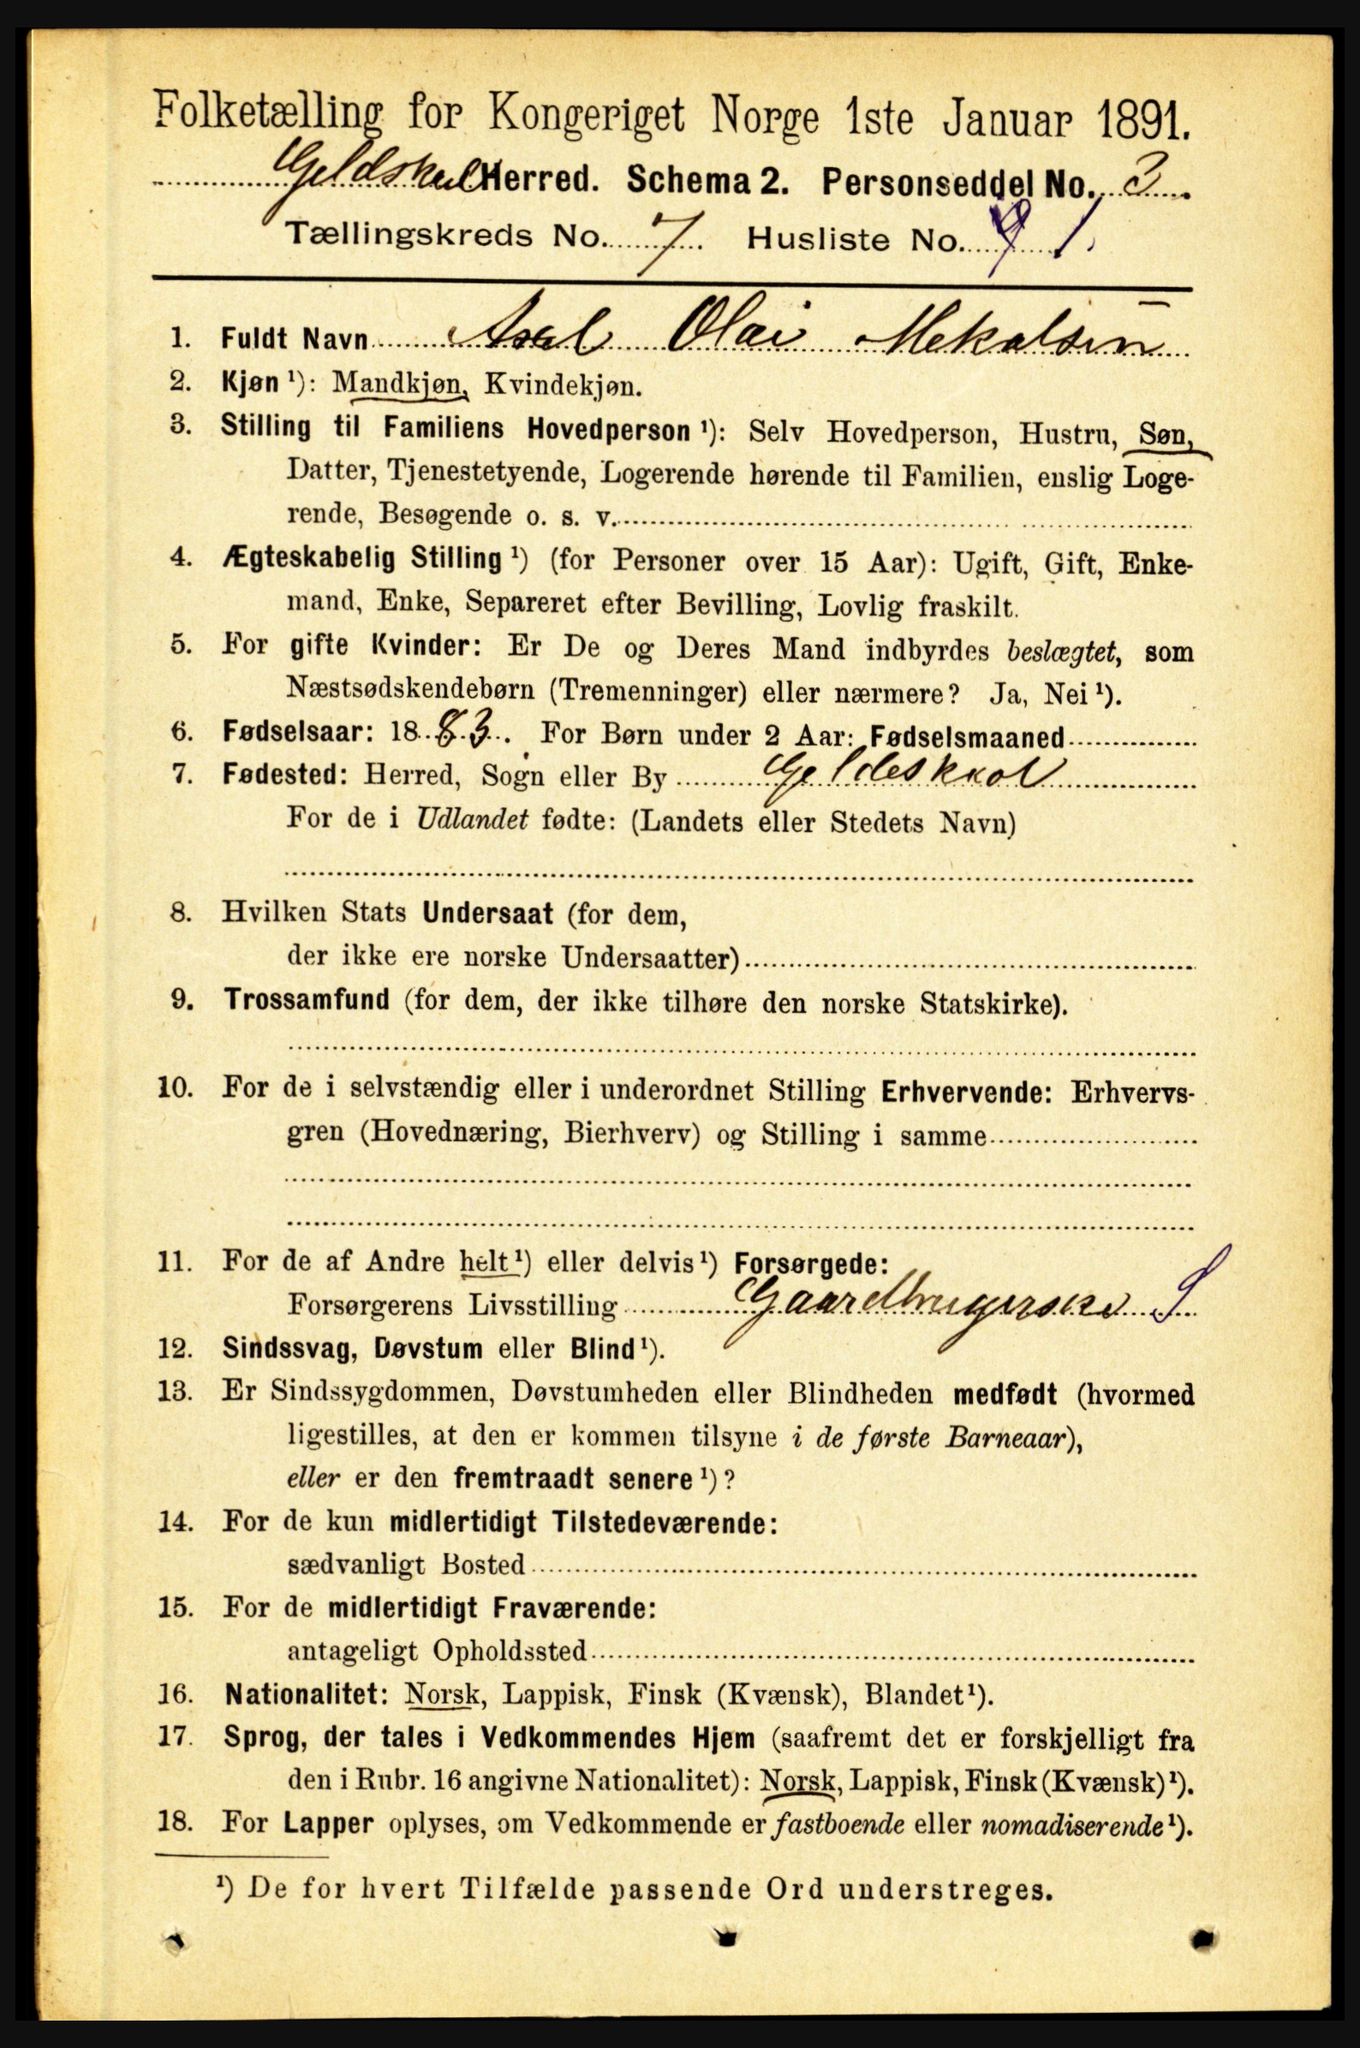 Folketælling for Kongeriget Norge 1ste Januar 1891.
Geldskaal Herred. Schema 2. Personseddel No. 3
Tællingskreds No. 7 Husliste No. 9 1.
1. Fuldt Navn Axel Olai Mekalsen
2. Kjøn ¹): Mandkjøn, Kvindekjøn.
3. Stilling til Familiens Hovedperson ¹): Selv Hovedperson, Hustru, Søn,
Datter, Tjenestetyende, Logerende hørende til Familien, enslig Loge-
rende, Besøgende o. s. v.
4. Ægteskabelig Stilling ¹) (for Personer over 15 Aar): Ugift, Gift, Enke-
mand, Enke, Separeret efter Bevilling, Lovlig fraskilt.
5. For gifte Kvinder: Er De og Deres Mand indbyrdes beslægtet, som
Næstsødskendebørn (Tremenninger) eller nærmere? Ja, Nei ¹).
6. Fødselsaar: 1883. For Børn under 2 Aar: Fødselsmaaned
7. Fødested: Herred, Sogn eller By Geldeskaal
For de i Udlandet fødte: (Landets eller Stedets Navn)
8. Hvilken Stats Undersaat (for dem,
der ikke ere norske Undersaatter)
9. Trossamfund (for dem, der ikke tilhøre den norske Statskirke).
10. For de i selvstændig eller i underordnet Stilling Erhvervende: Erhvervs-
gren (Hovednæring, Bierhverv) og Stilling i samme
11. For de af Andre helt ¹) eller delvis ¹) Forsørgede:
Forsørgerens Livsstilling Gaardbrugerske S
12. Sindssvag, Døvstum eller Blind ¹).
13. Er Sindssygdommen, Døvstumheden eller Blindheden medfødt (hvormed
ligestilles, at den er kommen tilsyne i de første Barneaar),
eller er den fremtraadt senere ¹)?
14. For de kun midlertidigt Tilstedeværende:
sædvanligt Bosted
15. For de midlertidigt Fraværende:
antageligt Opholdssted
16. Nationalitet: Norsk, Lappisk, Finsk (Kvænsk), Blandet ¹).
17. Sprog, der tales i Vedkommendes Hjem (saafremt det er forskjelligt fra
den i Rubr. 16 angivne Nationalitet): Norsk, Lappisk, Finsk (Kvænsk) ¹).
18. For Lapper oplyses, om Vedkommende er fastboende eller nomadiserende ¹).
¹) De for hvert Tilfælde passende Ord understreges.